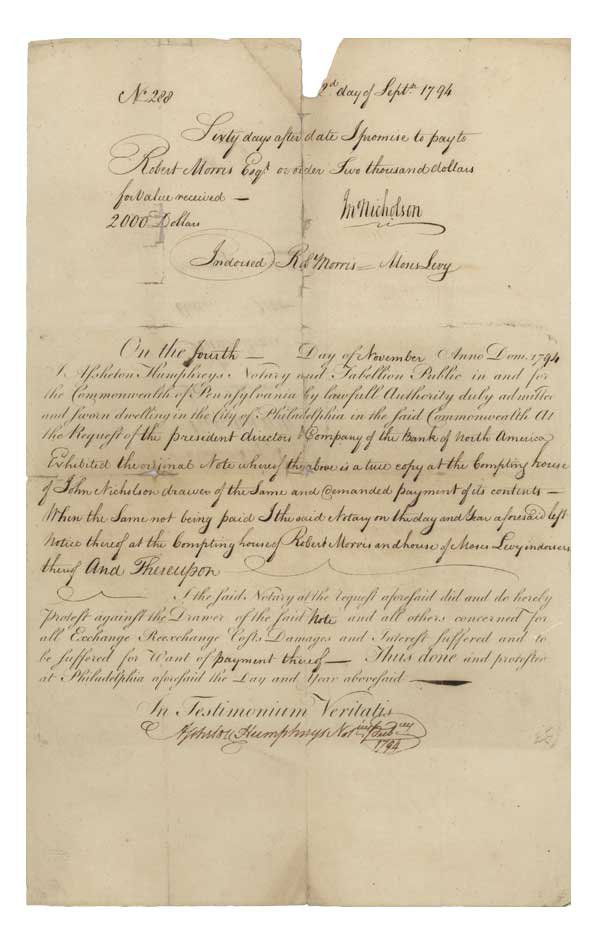 No. 288
2d day of Septr. 1794
Sixty days after date I promise to pay to
Robert Morris Esqr. or order Two thousand dollars
for Value received —
Jno Nicholson
2000 Dollars
Indorsed Robt Morris = Moses Levy
On the fourth — Day of November Anno Dom. 1794
I Assheton Humphreys Notary and Tabellion Public in and for
the Commonwealth of Pennsylvania by lawfull Authority duly admitted
and sworn dwelling in the City of Philadelphia in the said Commonwealth At
the Request of the president directors & Company of the Bank of North America
Exhibited the original Note whereof the above is a true copy at the Compting house
of John Nicholson drawer of the Same and demanded payment of its contents —
When the Same not being paid I the said Notary on the day and Year aforesaid left
Notice thereof at the Compting house of Robert Morris and house of Moses Levy indorsers
thereof And Thereupon
I the said Notary at the request aforesaid did and do hereby
Protest against the Drawer of the said Note and all others concerned for
all Exchange Reexchange Costs Damages and Interest suffered and to
be suffered for Want of payment thereof — Thus done and protested
at Philadelphia aforesaid the Day and Year abovesaid —
In Testimonium Veritatis
Assheton Humphreys Not Pub
1794